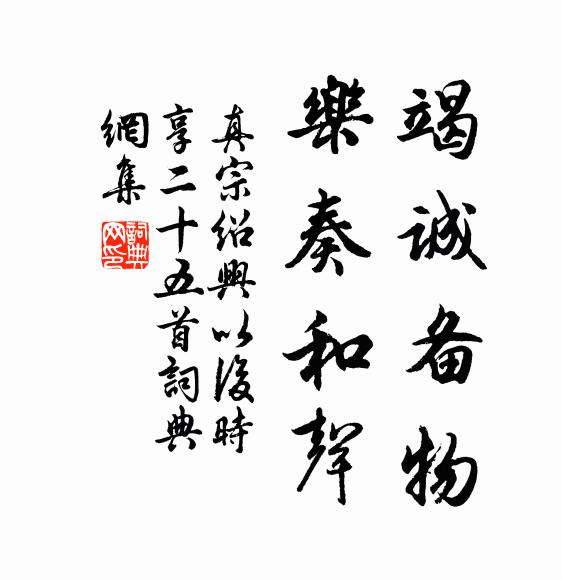 竭诚备物
樂奏和聲
真宗绍興以後時
享二十五首詞典
網集
詞典
网印